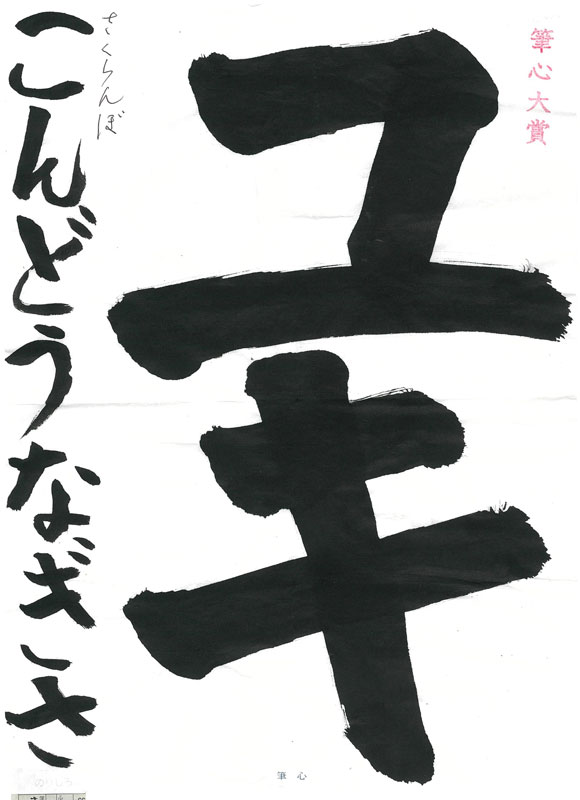 筆心大賞
ユキ
さくらんぼ
こんどうなぎさ
筆心